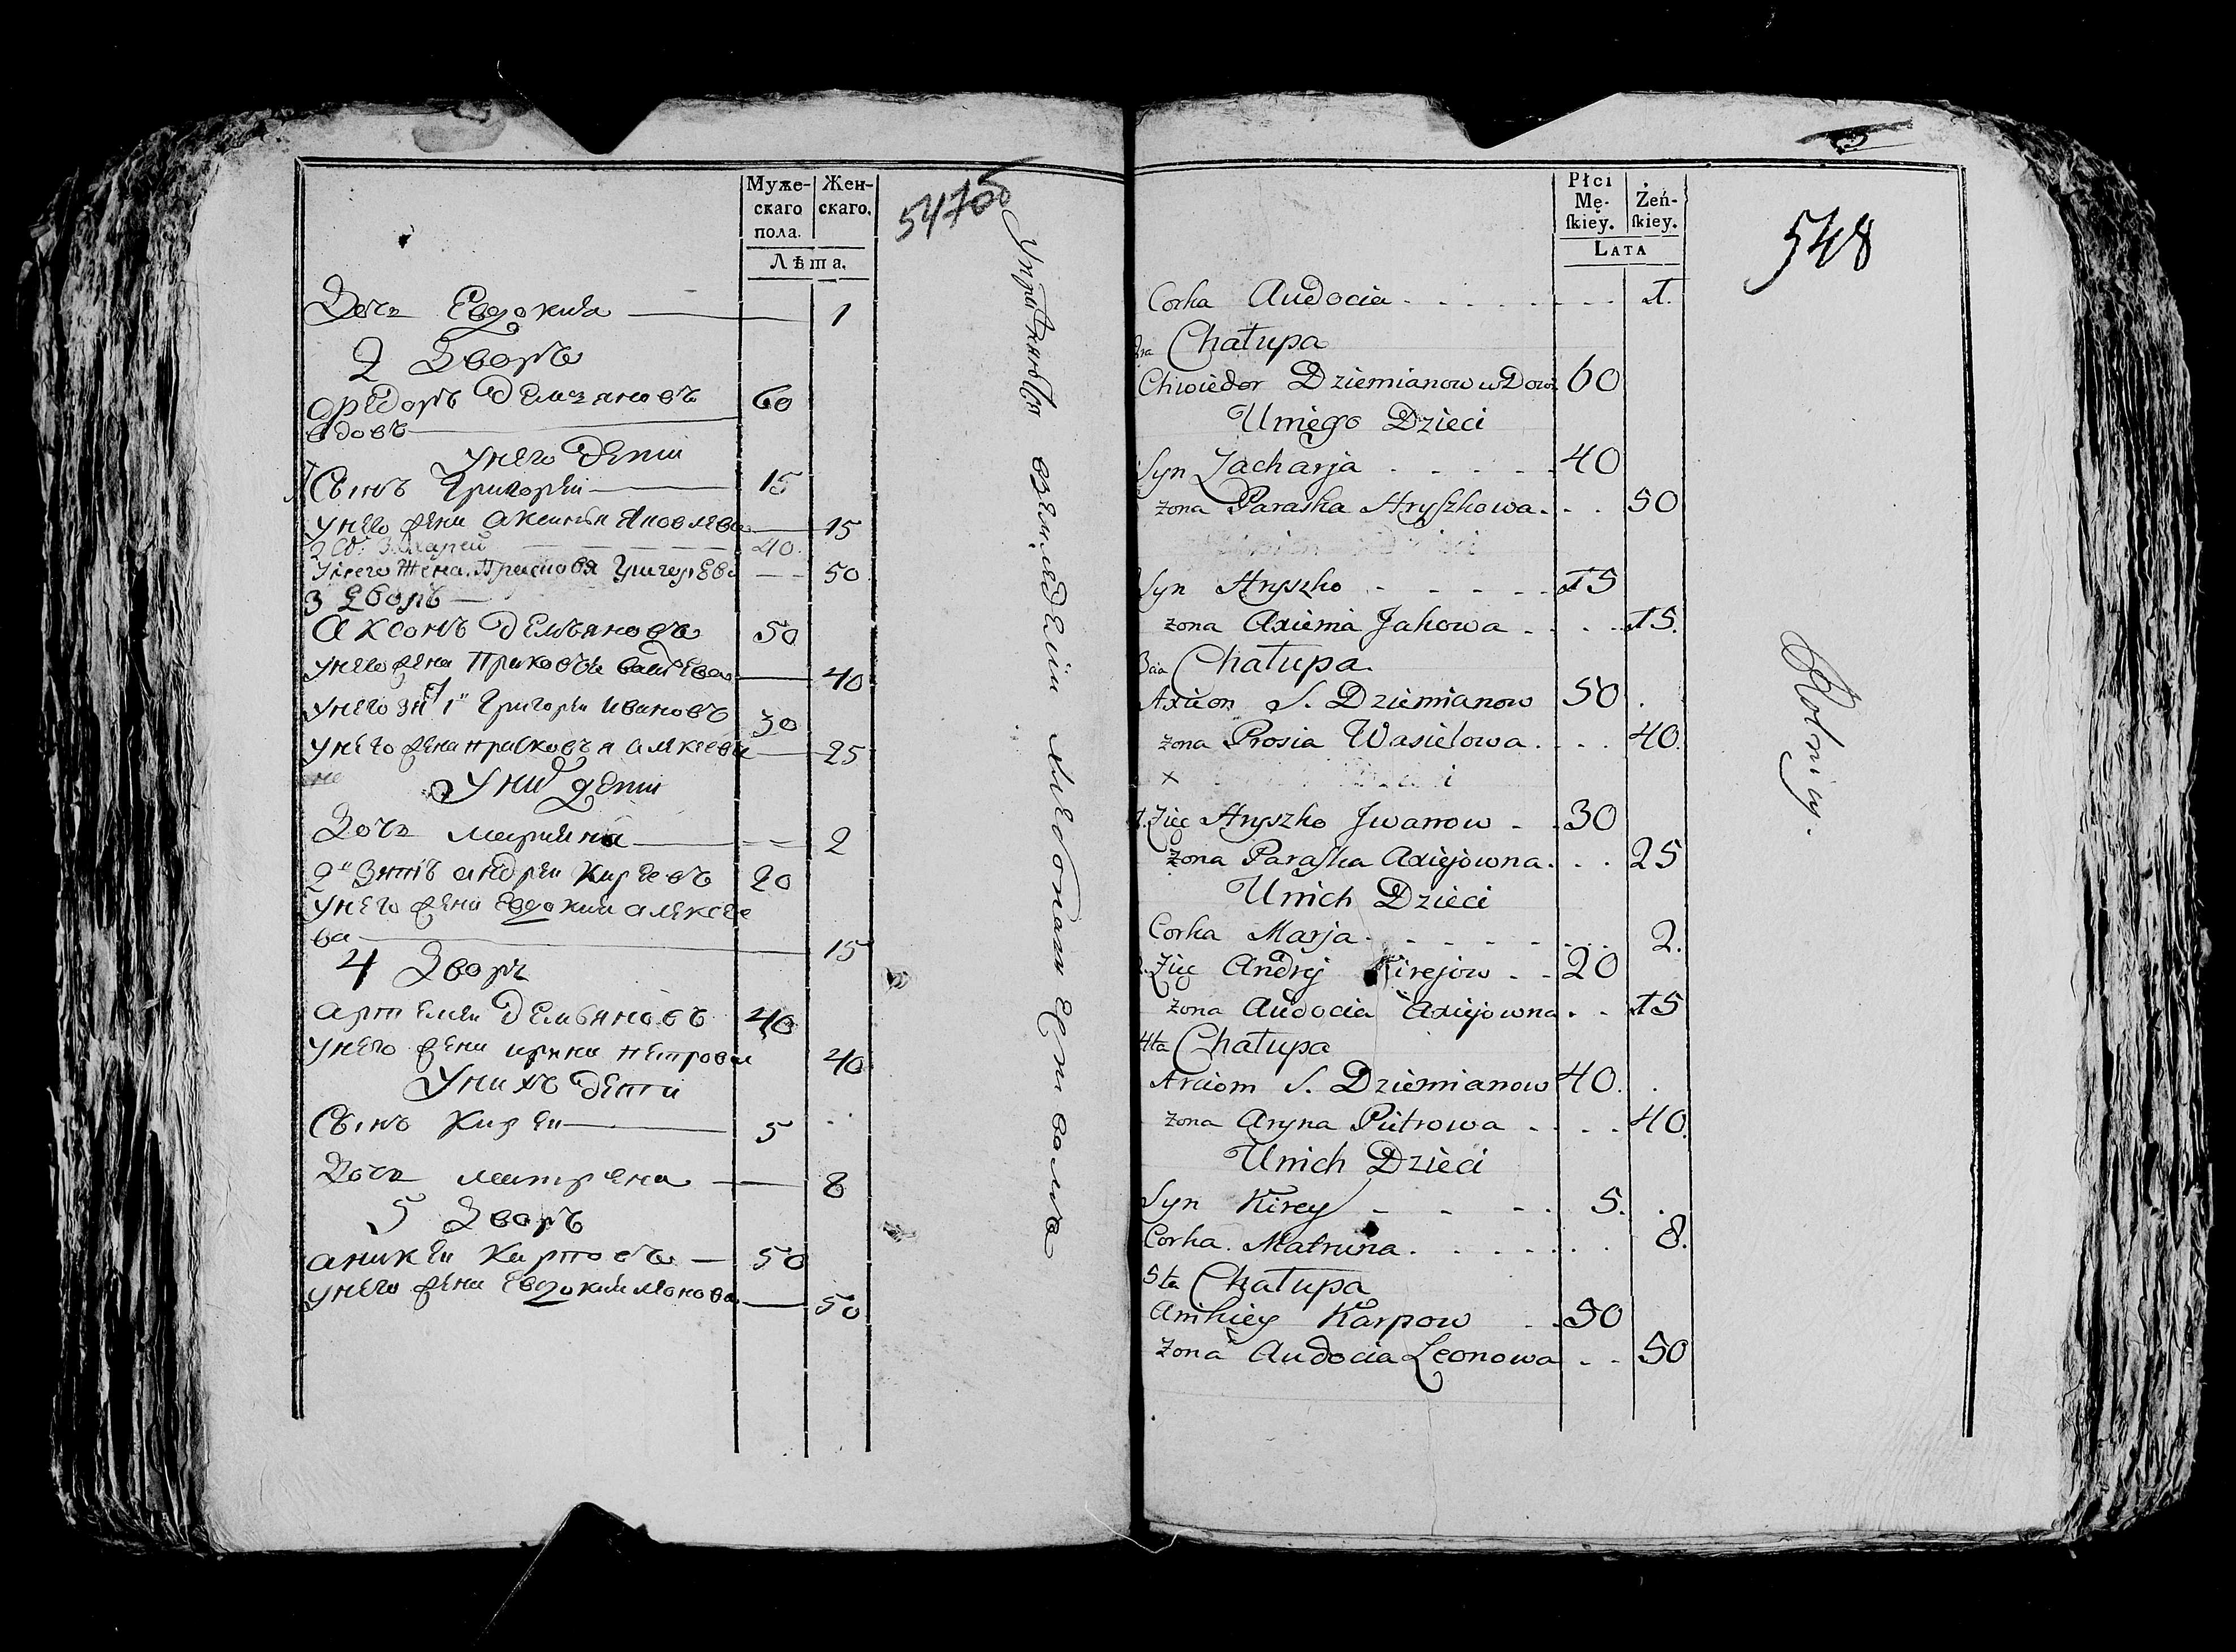 Муже-
скаго
пола.
Жен-
скаго.
Лѣта.
547об
Дочь Евдокиа 1
2 Дворъ
Федоръ Демьяновъ 60
вдовъ
унего дети
1 Сынъ Григореи 15
унего жена Аксинья Яковлева 15
2 Сы: Захарей 40.
Унего Жена. Прасковя Григорева 50
3 Дворъ
Аксонъ Демьяновъ 50
унего жена Прасковья Васильева 40
унего зять 1й Григореи Ивановъ 30
унего жена прасковья алексеева 25
Уних дети
Дочь марина 2
2й Зять андреи Киреевъ 20
унего жена Евдокия алексее
ва 15
4 Дворъ
артемеи Демьяновъ 40
унего жена ирина петрова 40
Унихъ дети
Сынъ Киреи 5
Дочь матрена 8
5 Дворъ
аникеи Карповъ 50
унего жена Евдокия леонова 50
Płci
Mę-
ſkiey.
Żeń-
ſkiey.
LATA
548
Corka Audocia 1.
2ra Chałupa
Chwiedor Dziemianow wDow 60
Uniego Dzieci
Syn Zacharja 40
żona Paraska Hryszkowa 50
Syn Hryszko 15
żona Axienia Jakowa 15.
3cia Chałupa
Axion S. Dziemianow 50
żona Prosia Wasielowa 40.
x
1. Zięc Hryszko Jwanow 30
żona Paraska Axiejowna 25
Unich Dzieci
Corka Marja 2.
2. Zięc Andrej Kirejow 20
żona Audocia Axiejowna 15
4ta Chałupa
Arciom S. Dziemianow 40.
żona Aryna Pietrowa 40.
Unich Dzieci
Syn Kirey 5.
Corka. Matruna 8.
5ta Chałupa
Anikiey Karpow 50
żona Audocia Leonowa 50
Rolnicy.